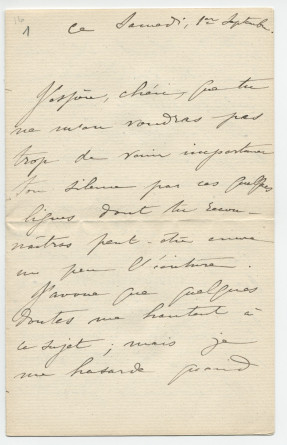 1
Ce Samedi, 1er Septembre.
J'espère, chéri, que tu
ne m'en voudras pas
trop de venir importuner
ton silence par ces quelques
lignes dont tu recon-
naîtras peut-être encore
un peu l'écriture.
J'avoue que quelques
doutes me hantent à
ce sujet ; mais je
me hasarde quand